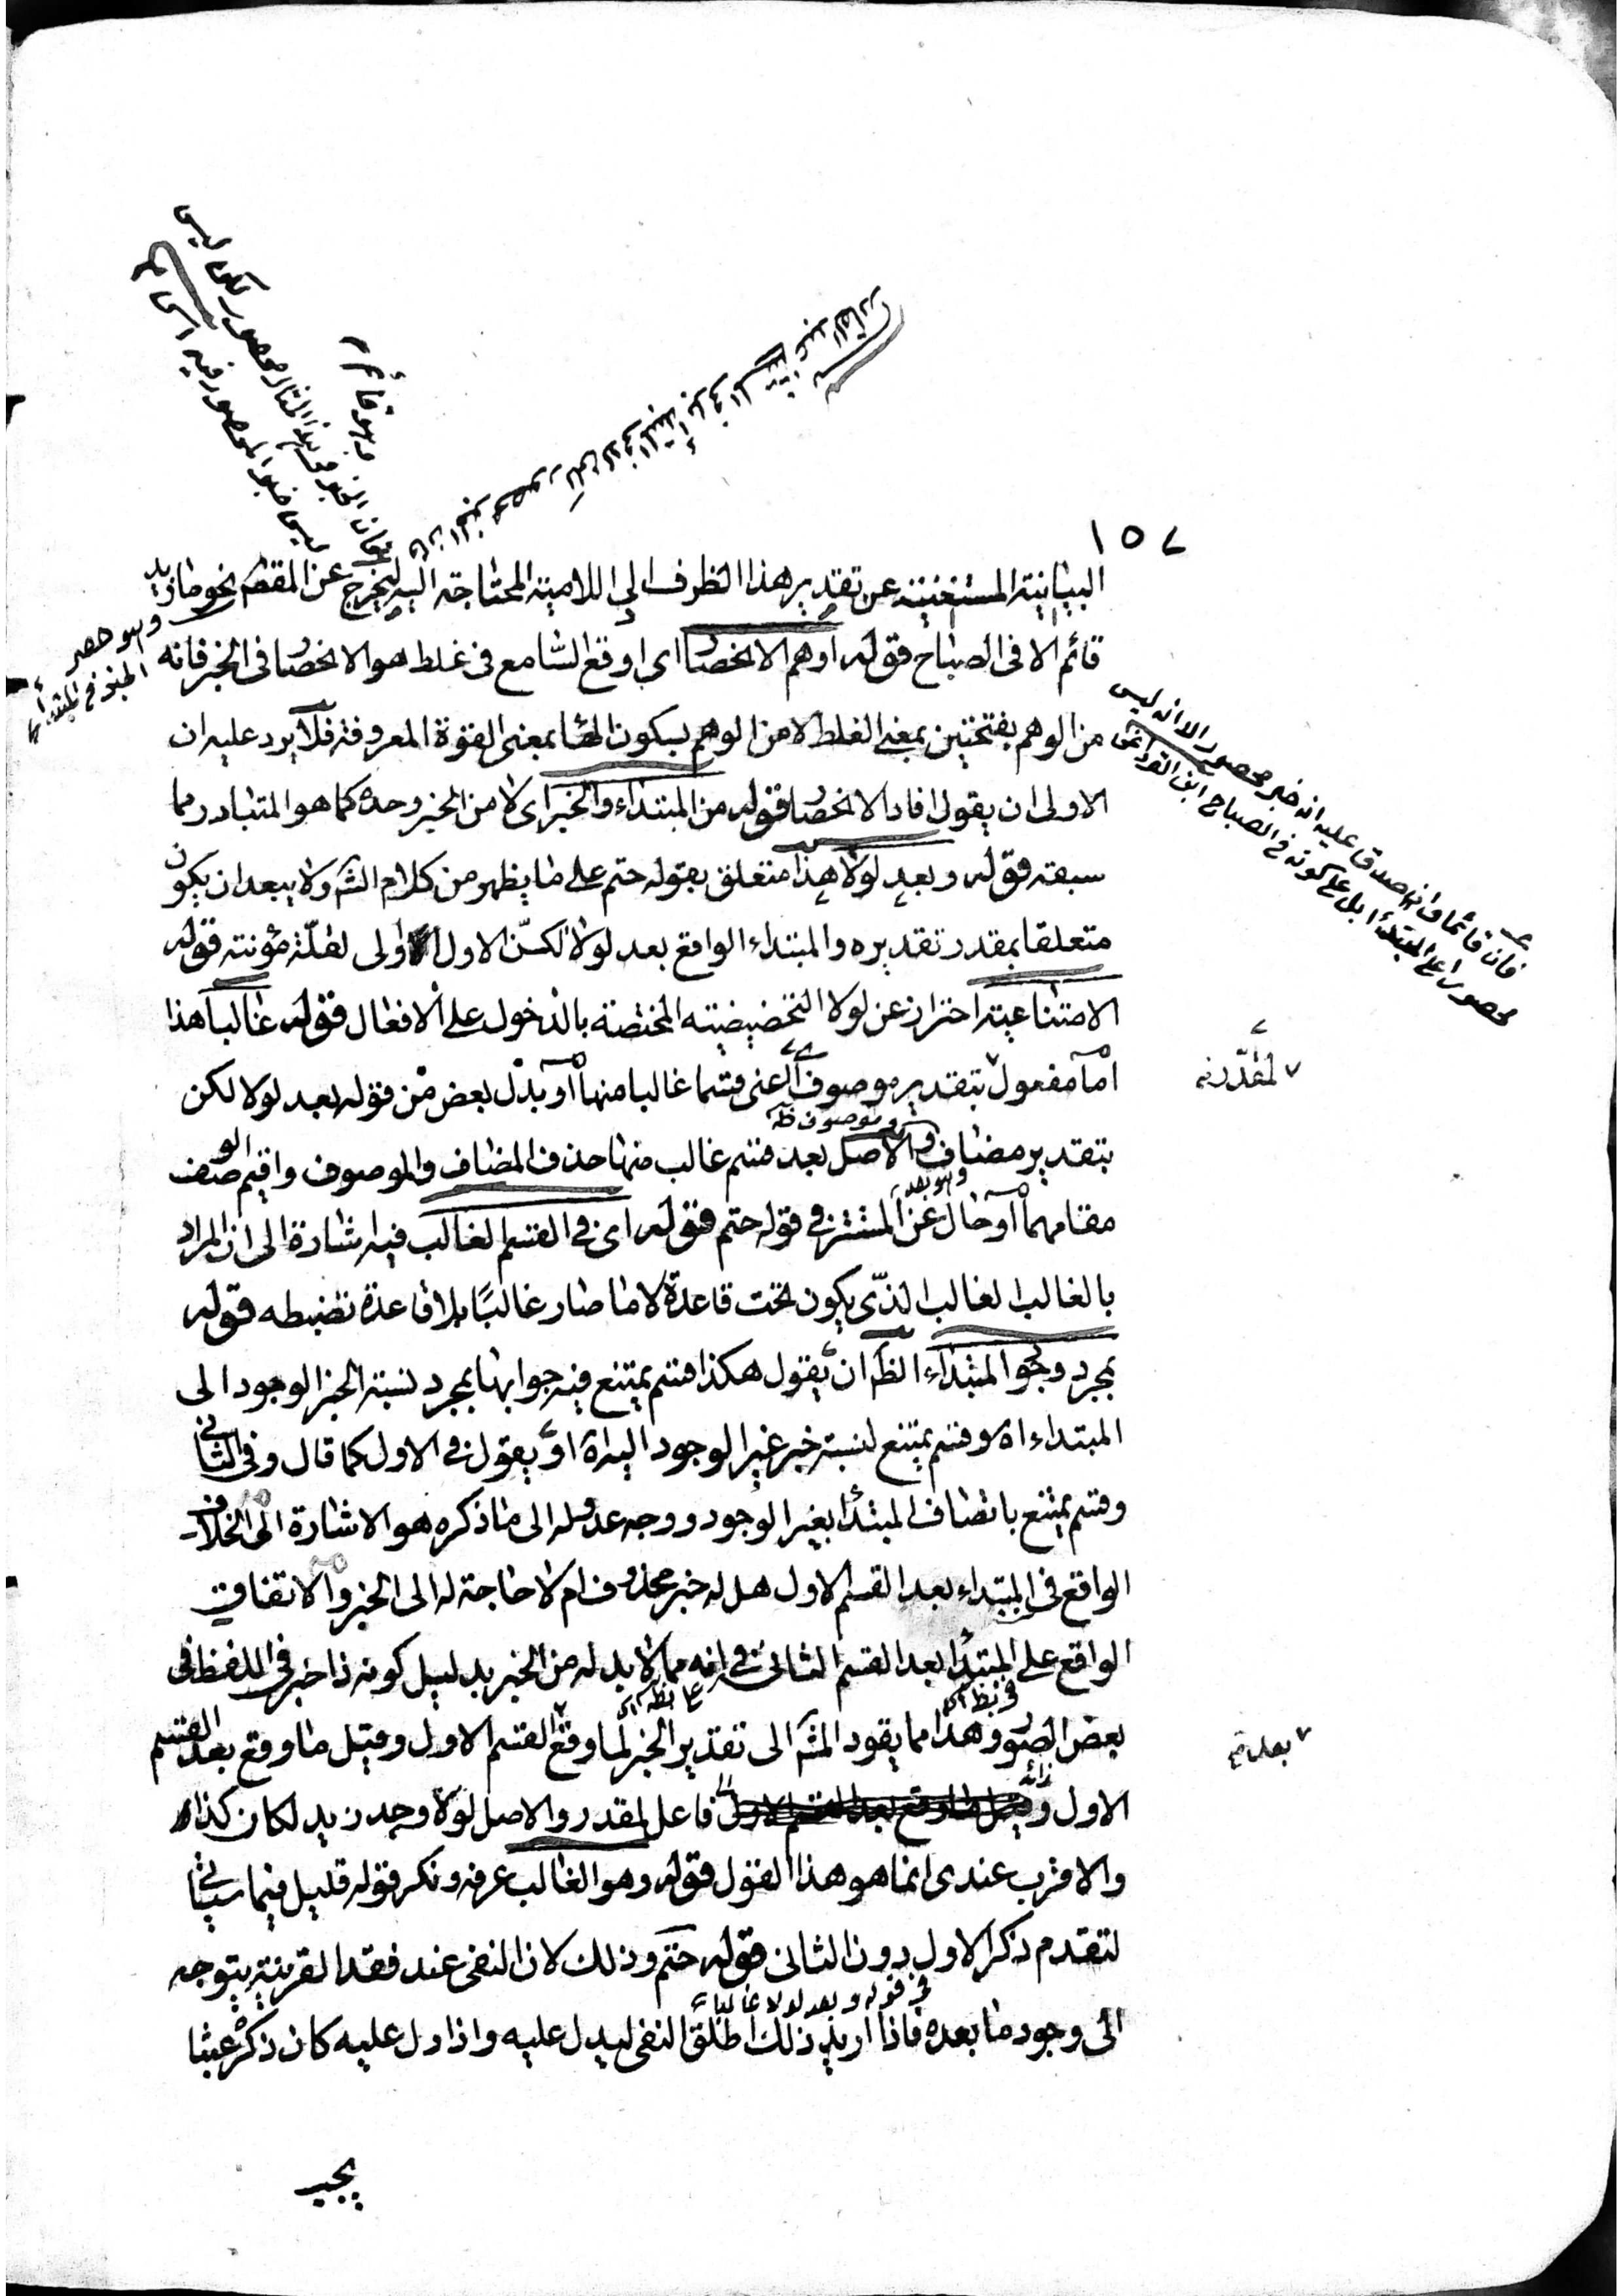 ١٥٧
البيانية المستغنية عن تقدير هذا الظرف الى اللامية المحتاجة اليه ليخرج عن المقطم نحو ما زيد
قائم الا فى الصباح قوله اوهم الانحصار اى اوقع السامع فى غلط هو الانحصار فى الخبر فانه
من الوهم بفتحتين بمعنى الغلط لا من الوهم بسكون الهاء بمعنى القوة المعروفة فلا يرد عليه ان
الاولى ان يقول افاد الانحصار قوله من المبتداء والخبر اى لا من الخبر وحده كما هو المتبادر مما
سبقه قوله وبعد لولا هذا متعلق بقوله حتم على ما يظهر من كلام الش ولا يبعد ان يكون
متعلقا بمقدر تقديره والمبتداء الواقع بعد لولا لكنّ الاول اولى لقلّة مؤنته قوله
الامتناعية احتراز عن لولا التحضيضية المختصة بالدخول على الافعال قوله غالبا هذا
اما مفعول بتقدير موصوف اعنى قسما غالبا منها او بدل بعض من قوله بعد لولا لكن
بتقدير مضاف والاصل بعد قسم غالب منها حذف المضاف والموصوف واقيم الوصف
مقامهما او حال عن المستتر فى قوله حتم قوله اى فى القسم الغالب فيه اشارة الى ان المراد
بالغالب الغالب الذّى يكون تحت قاعدة لا ما صار غالبًا بلا قاعدة تضبطه قوله
بمجرد وجود المبتداء الظ ان يقول هكذا قسم يمتنع فيه جوابها بمجرد نسبة الخبر الوجود الى
المبتداء اه وقسم يمتنع لنسبة خبر غير الوجود اليه اه او يقول فى الاول كما قال وفى الثانى
وقسم يمتنع باتصاف المبتدأ بغير الوجود ووجه عدوله الى ما ذكره هو الاشارة الى الخلاف
الواقع فى المبتداء بعد القسم الاول هل له خبر محذوف ام لا حاجة له الى الخبر والاتفاق
الواقع على المبتدأ بعد القسم الثانى فى انه مما لا بد له من الخبر بدليل كونه ذا خبر فى اللفظ فى
بعض الصور وهذا مما يقود المش الى تقدير الخبر لما وقع القسم الاول وقيل ما وقع بعد القسم
الاول فاعل لمقدر والاصل لولا وجد زيد لكان كذا
والاقرب عندى انما هو هذا القول قوله وهو الغالب عرفه ونكر قوله قليل فيما سيأتى
لتقدم ذكر الاول دون الثانى قوله حتم وذلك لان النفى عند فقد القرينة يتوجه
الى وجود ما بعده فاذا اريد ذلك اطلق النفى ليدل عليه واذا دل عليه كان ذكره عبثا
وهو حصر
المبتدأ
فان قائما وان صدق عليه انه خبر محصور الا انه ليس
محصورا على المبتدأ بل على كونه فى الصباح
لمقدر
بعد
فى قوله وبعد لولا غالبا
يجب